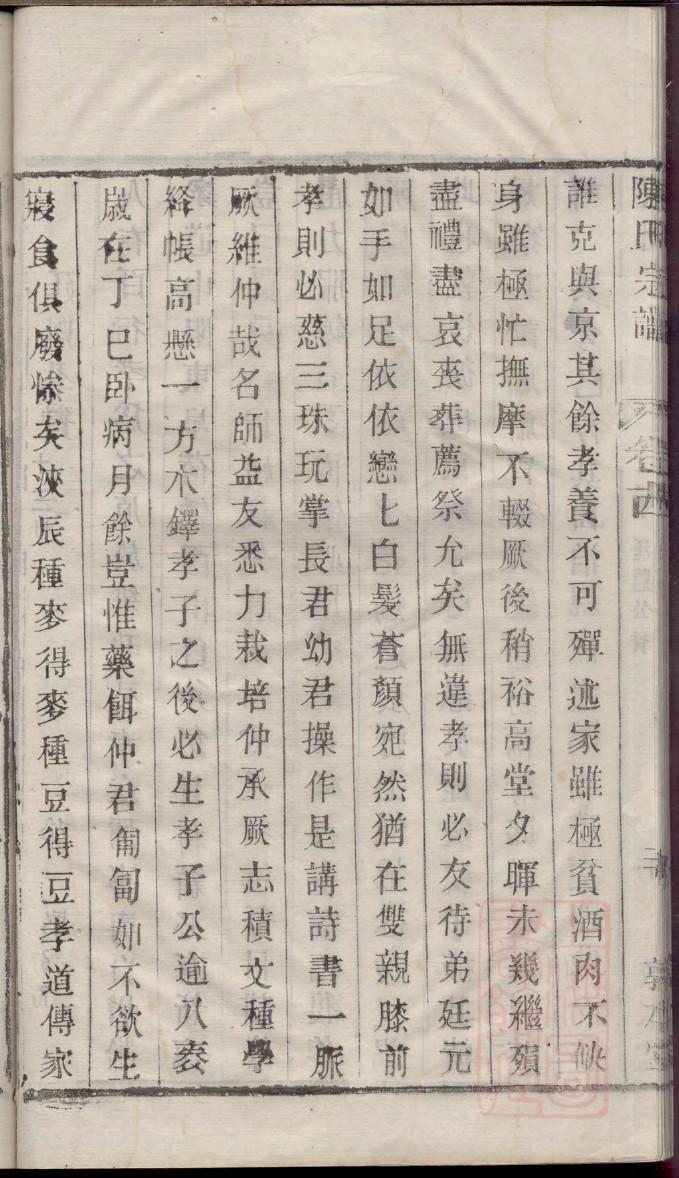 陳氏宗譜 卷十四
誰克與京其餘孝養不可殫述家雖極貧酒肉不缺
身雖極忙撫摩不輟厥後稍裕高堂夕暉未幾繼殞
盡禮盡哀喪葬薦祭允矣無違孝則必友待弟廷元
如手如足依依戀七白髮蒼顏宛然猶在雙親膝前
孝則必慈三珠玩掌長君幼君操作是講詩書一脈
厥維仲哉名師益友悉力栽培仲承厥志積文種學
絳帳高懸一方木鐸孝子之後必生孝子公逾八袠
歲在丁巳卧病月餘豈惟藥餌仲君匍匐如不欲生
寢食俱廢慘矣浹辰種麥得麥種豆得豆孝道傳家